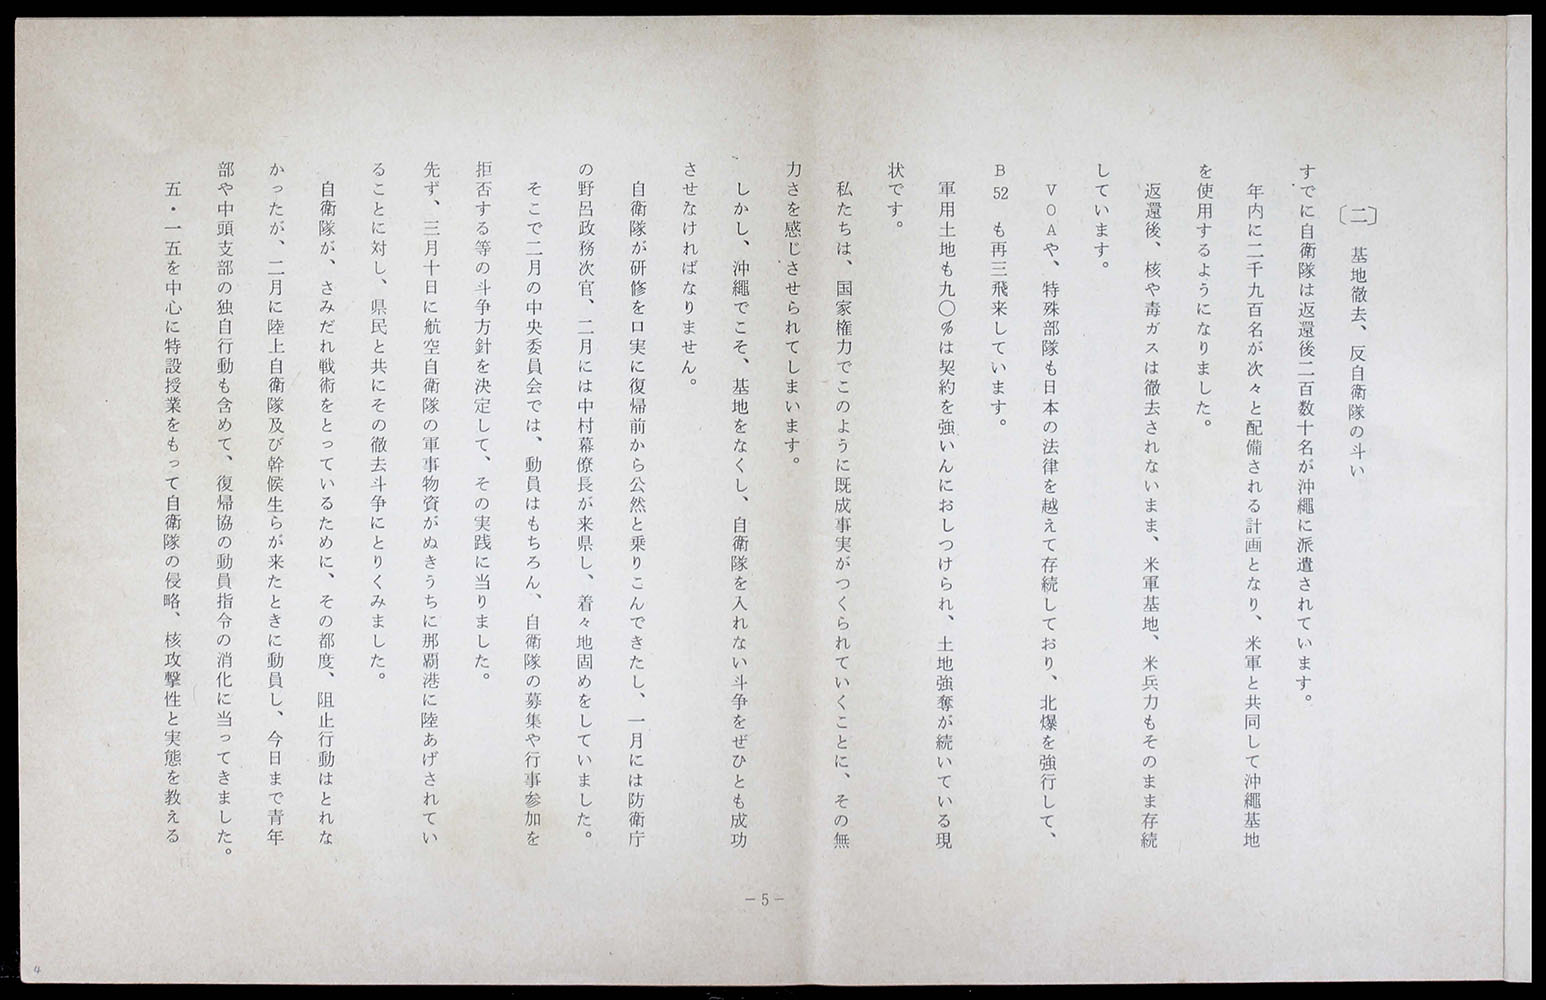 〔二〕 基地徹去、反自衛隊の斗い
すでに自衛隊は返還後二百数十名が沖縄に派遣されています。
年内に二千九百名が次々と配備される計画となり、米軍と共同して沖縄基地
を使用するようになりました。
返還後、核や毒ガスは徹去されないまま、米軍基地、米兵力もそのまま存続
しています。
VOAや、特殊部隊も日本の法律を越えて存続しており、北爆を強行して、
B52も再三飛来しています。
軍用土地も九〇%は契約を強いんにおしつけられ、土地強奪が続いている現
状です。
私たちは、国家権力でこのように既成事実がつくられていくことに、その無
力さを感じさせられてしまいます。
しかし、沖縄でこそ、基地をなくし、自衛隊を入れない斗争をぜひとも成功
させなければなりません。
自衛隊が研修を口実に復帰前から公然と乗りこんできたし、一月には防衛庁
の野呂政務次官、二月には中村幕僚長が来県し、着々地固めをしていました。
そこで二月の中央委員会では、動員はもちろん、自衛隊の募集や行事参加を
拒否する等の斗争方針を決定して、その実践に当りました。
先ず、三月十日に航空自衛隊の軍事物資がぬきうちに那覇港に陸あげされてい
ることに対し、県民と共にその徹去斗争にとりくみました。
自衛隊が、さみだれ戦術をとっているために、その都度、阻止行動はとれな
かったが、二月に陸上自衛隊及び幹候生らが来たときに動員し、今日まで青年
部や中頭支部の独自行動も含めて、復帰協の動員指令の消化に当ってきました。
五・一五を中心に特設授業をもって自衛隊の侵略、核攻撃性と実態を教える
－5－
4